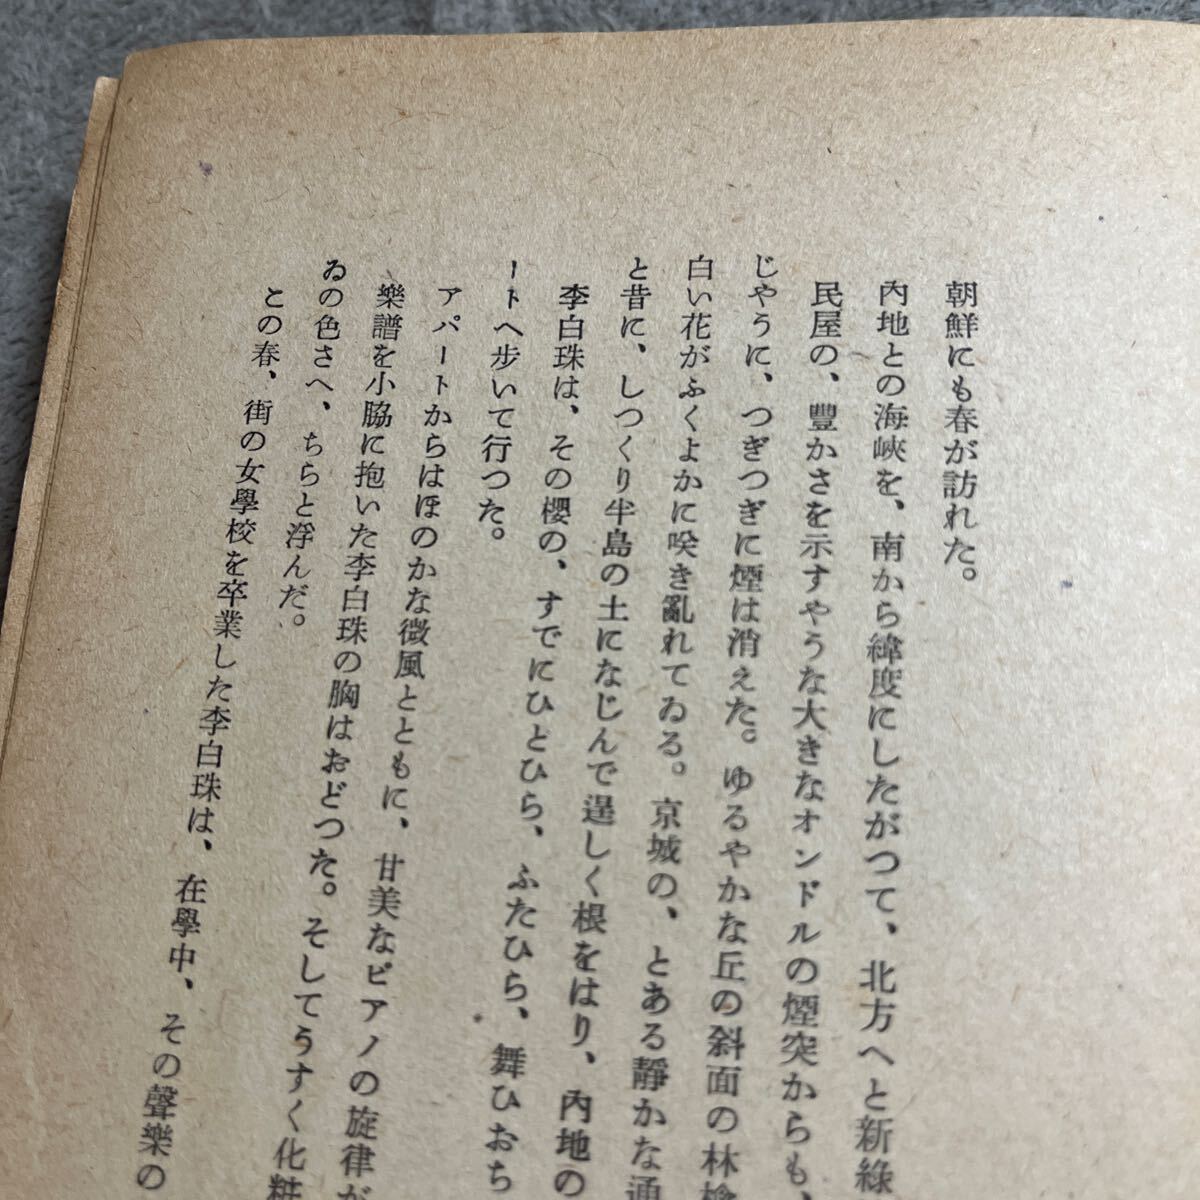 朝鮮にも春が訪れた。
內地との海峽を、南から緯度にしたがつて、北方へと新綠
民屋の、豐かさを示すやうな大きなオンドルの煙突からも、
じやうに、つぎつぎに煙は消えた。ゆるやかな丘の斜面の林檎
白い花がふくよかに咲き亂れてゐる。京城の、とある靜かな通
と昔に、しつくり半島の土になじんで逞しく根をはり、內地の
李白珠は、その櫻の、すでにひとひら、ふたひら、舞ひおち
ートへ步いて行つた。
アパートからはほのかな微風とともに、甘美なピアノの旋律が
樂譜を小脇に抱いた李白珠の胸はおどつた。そしてうすく化粧
ゐの色さへ、ちらと浮んだ。
この春、街の女學校を卒業した李白珠は、在學中、その聲樂の